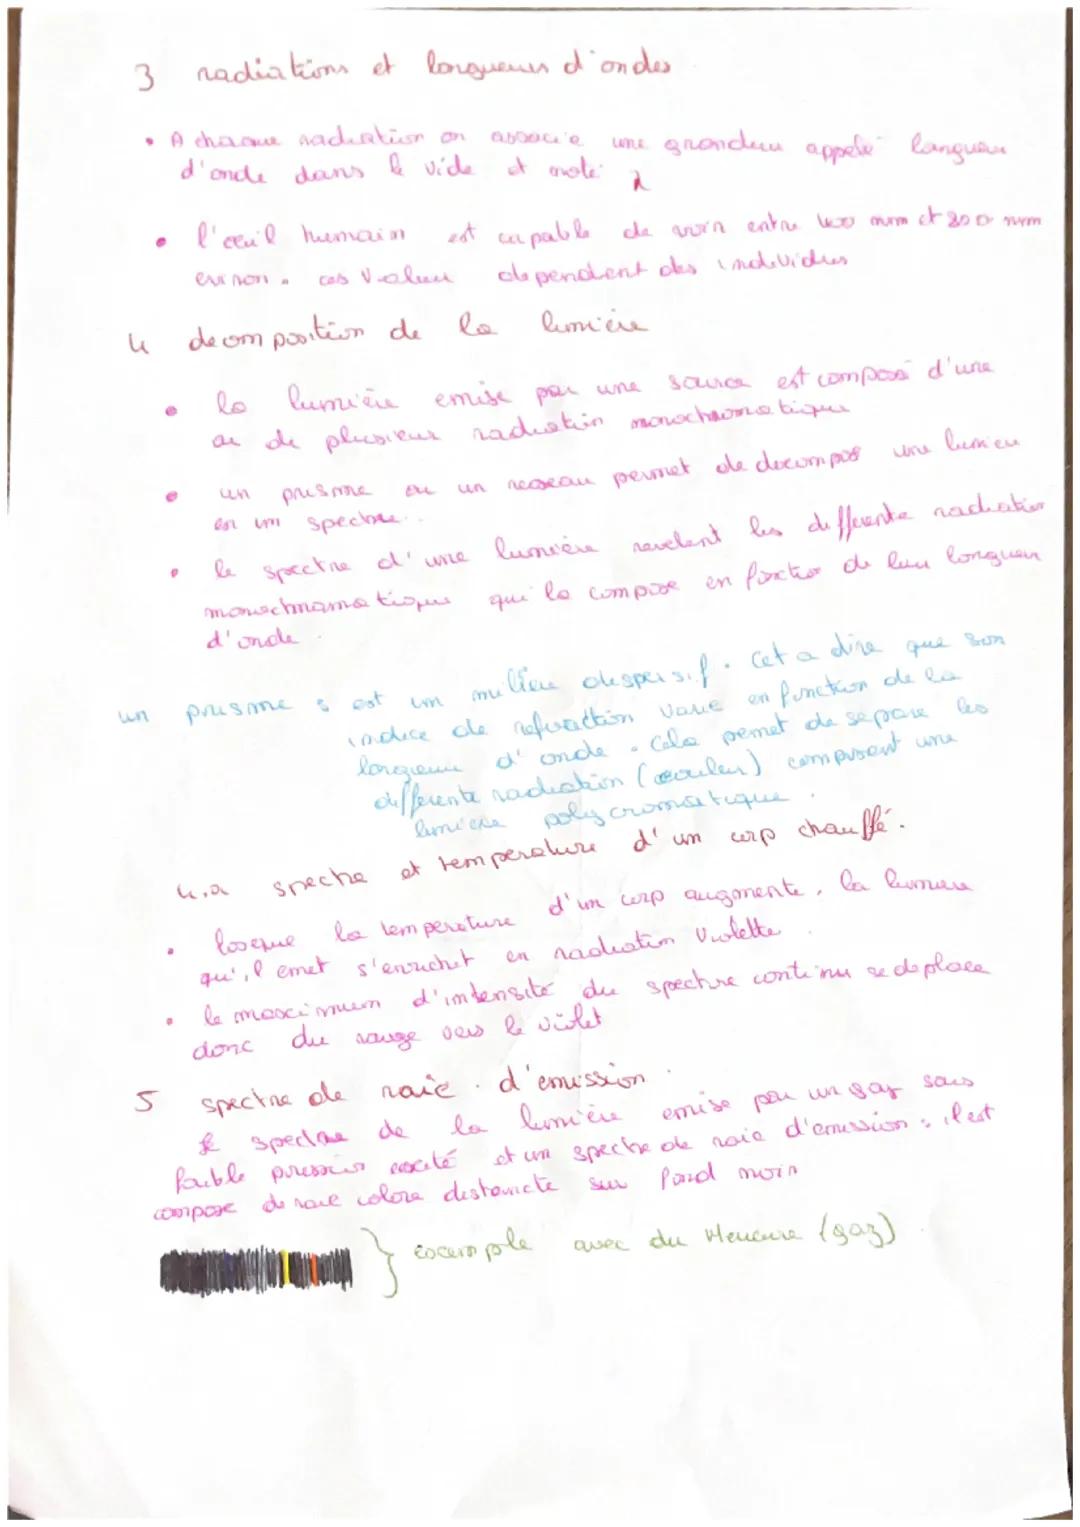 3 radiations et longueurs d'ondes
• A chaque radiation on associe une grandeur appelé longueur
d'onde dans le vide et noté λ
• l'œuil humain est capable de voir entre 400 nm et 800 nm
environ. ces valeur dependent des individus
4 decomposition de la lumière
• la lumière emise par une source est composé d'une
ou de plusieur radiation monochromatique
• un prisme ou un reseau permet de decompos une lumieu
en un spectre.
• le spectre d'une lumière revelent les differente radiation
monochromatique qui la compose en fonction de leur longueur
d'onde.
un prisme : est un milieu dispersif. Cet a dire que son
indice de refraction varie en fonction de la
longueur d'onde. Cela permet de separe les
differente radiation (couleur) composant une
lumière polycromatique.
4.a spectre et temperature d'un corp chauffé.
• losque la temperature d'un corp augmente, la lumiere
qu'il emet s'enrichit en radiation violette.
• le maximum d'intensité du spectre continu se deplace
donc du rouge vers le violet
5 spectre de raie d'emission.
le spectre de la lumière emise par un gaz sous
faible pression excité et un spectre de raie d'emission : il est
compose de raie colore distincte sur fond noir
} exemple avec du Mercure (gaz).